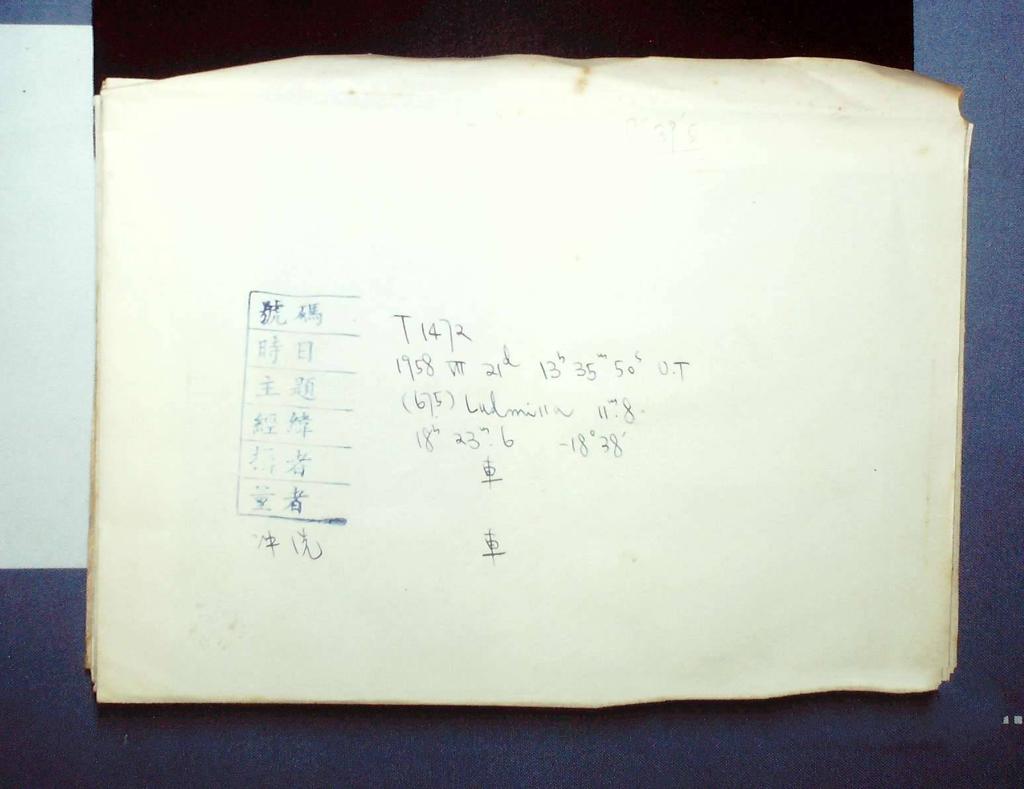 號碼 T 1472
時日 1958 VII 21ᵈ 13ʰ 35ᵐ 50ˢ U.T
主題 (675) Ludmilla 11ᵐ.8
經緯 18ʰ 23ᵐ.6 -18°38'
者 車
量者
冲洗 車